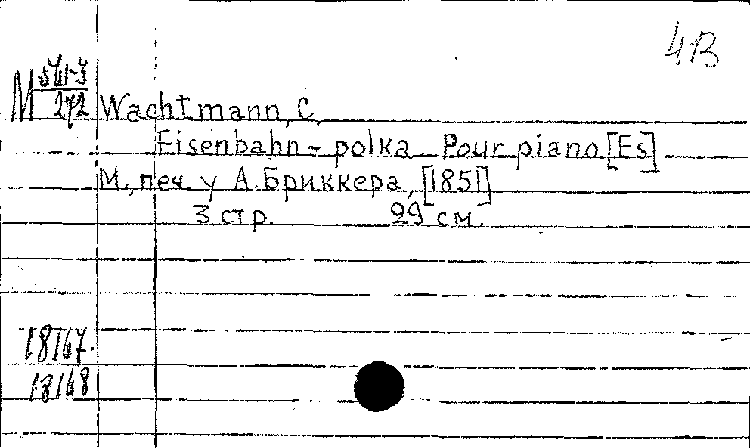 4В
M 272
Wachtmann, C.
Eisenbahn – polka. Pour piano [Es]
М., печ. у А. Бриккера, [1851]
3 стр. 29 см.
18167.
18168